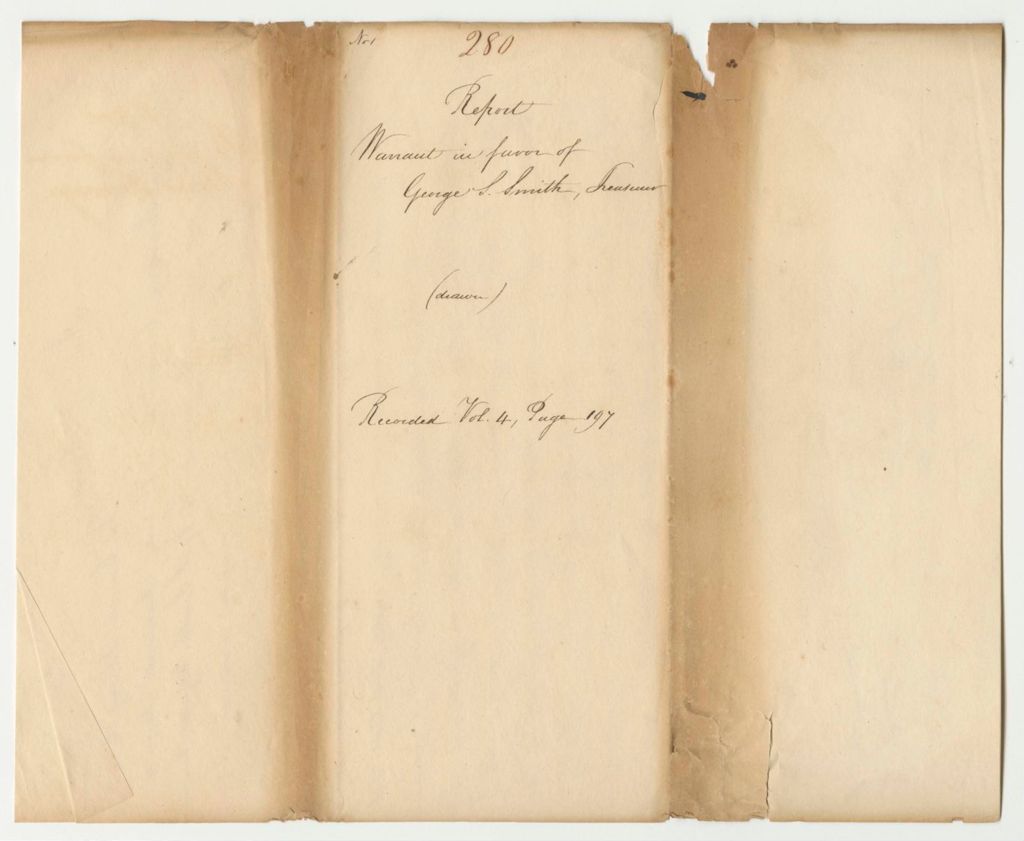 No 1
280
Report
Warrant in favor of
George S. Smith, Treasurer
(drawn)
Recorded Vol. 4, Page 197